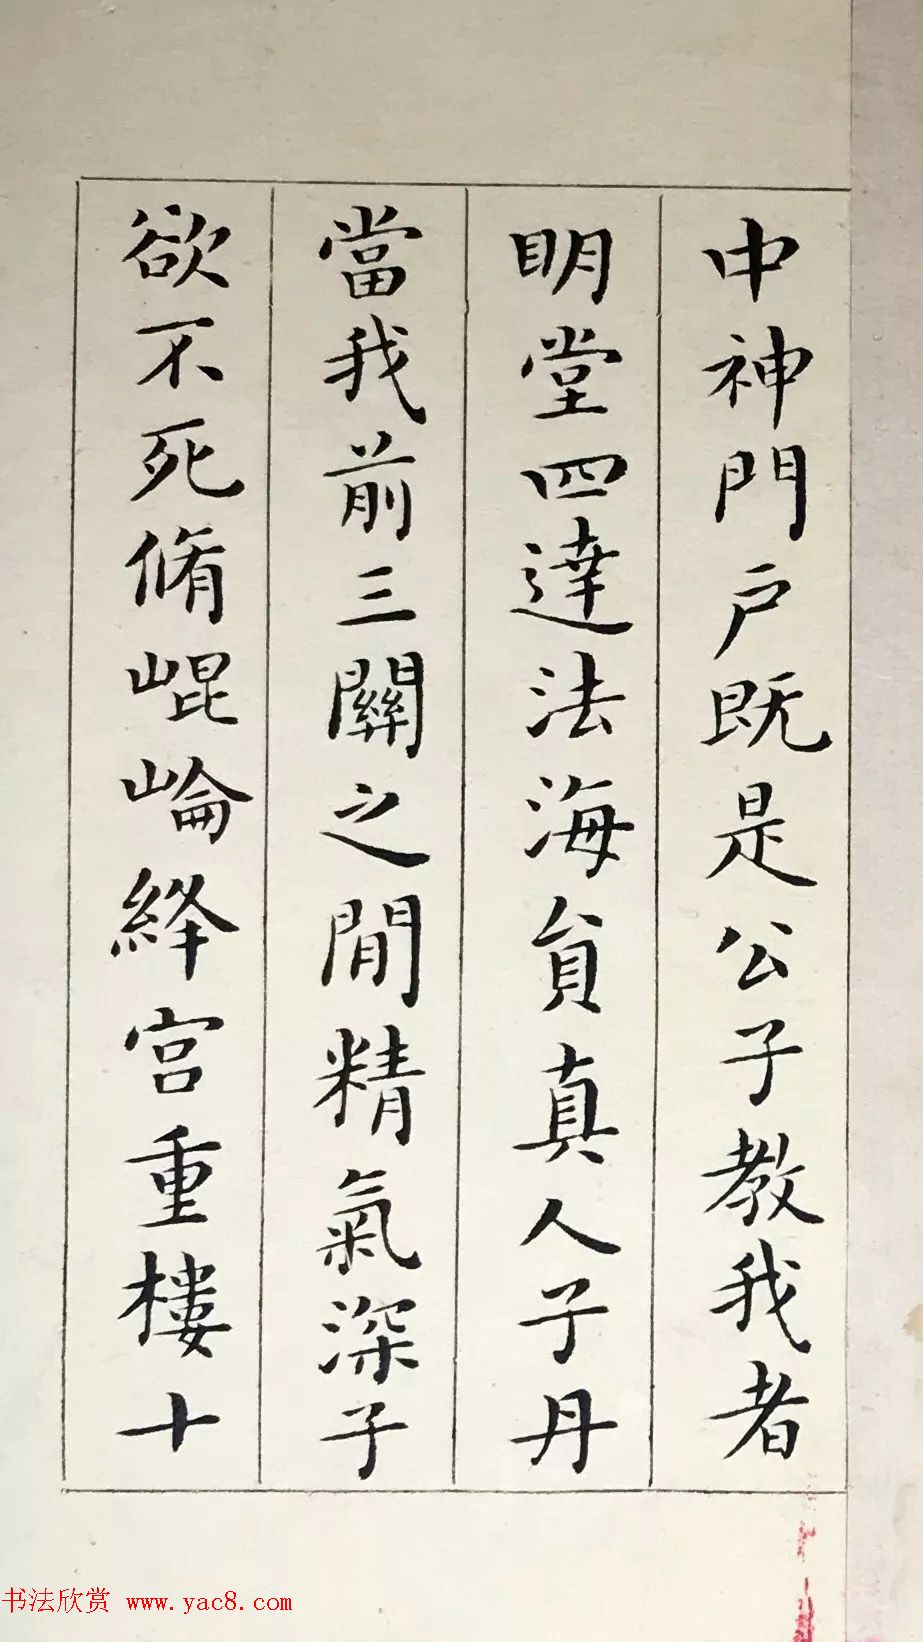 中神門户既是公子教我者
明堂四達法海貟真人子丹
當我前三關之閒精氣深子
欲不死脩崐崘絳宫重樓十
书法欣赏 www.yac8.com